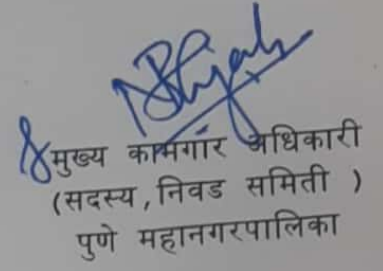 मुख्य कामगार अधिकारी
(सदस्य, निवड समिती )
पुणे महानगरपालिका